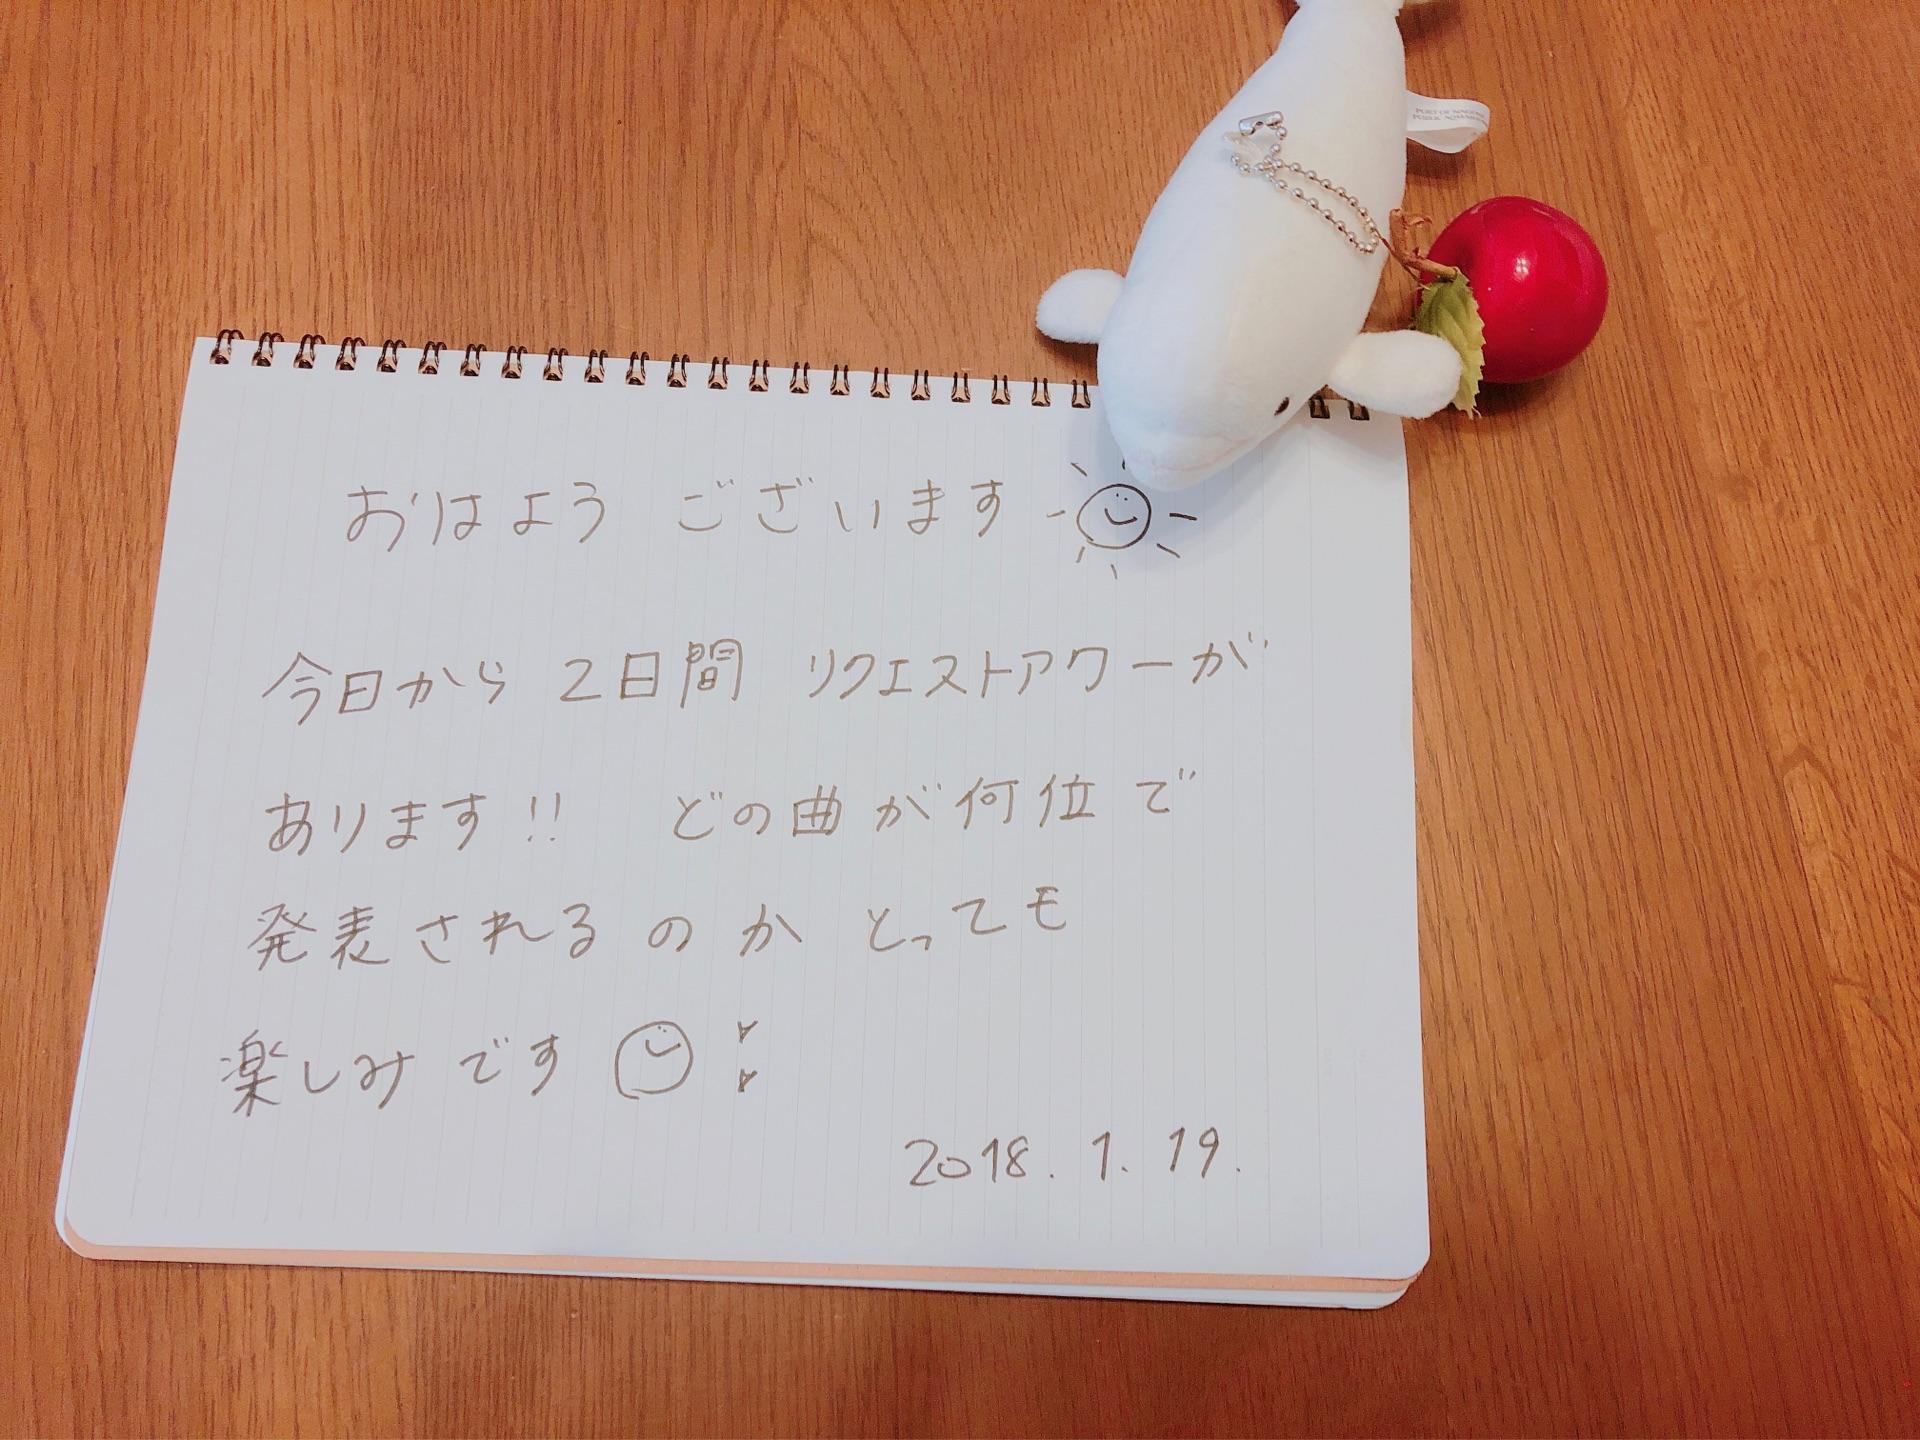 おはよう ございます
今日から 2日間 リクエストアワーが
あります!! どの曲が何位で
発表されるのか とっても
楽しみです
2018. 1. 19.
PORT OF NAGOYA
PUBLIC AQUARIUM